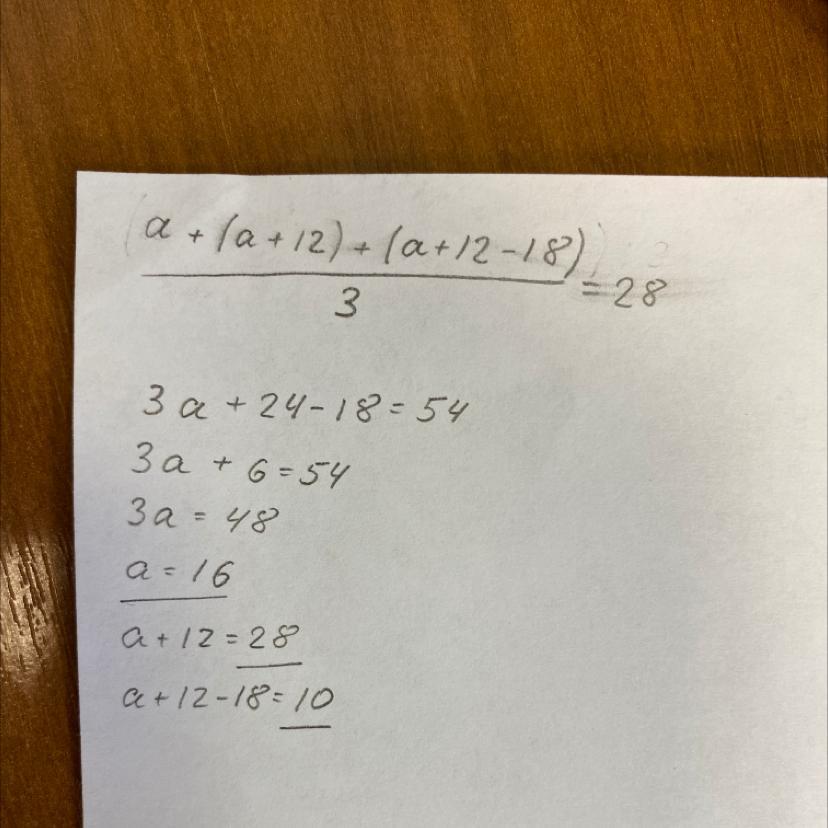 a + (a+12) + (a+12-18)
3
= 28
3a + 24-18 = 54
3a + 6 = 54
3a = 48
a = 16
a + 12 = 28
a + 12 - 18 = 10